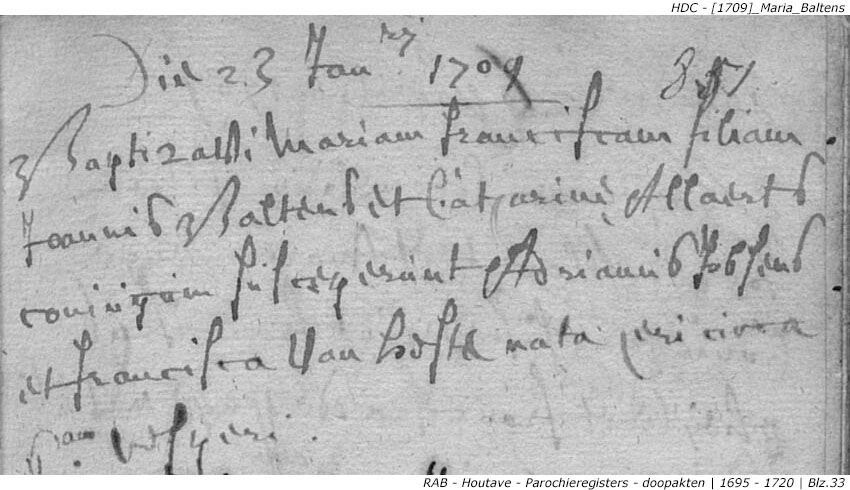 HDC - [1709]_Maria_Baltens
Die 23 Jan ry 1709
Baptizavi Mariam franciscam filiam
Joannis Baltens et Catharine Allaerts
coniugum susceperunt Adrianus Jobsens
et francisca Van hoeste nata heri circa
6am vesperi.
RAB - Houtave - Parochieregisters - doopakten | 1695 - 1720 | Blz.33